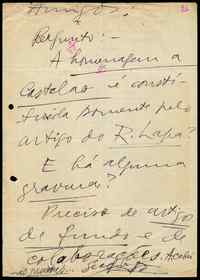 Amigos:
Pergunto: -
A homenagem a
Castelao é consti-
tuida somente pelo
artigo do R. Lapa?
E há alguma
gravura?
Preciso de artigo
de fundo e de
colaborações. Acabei